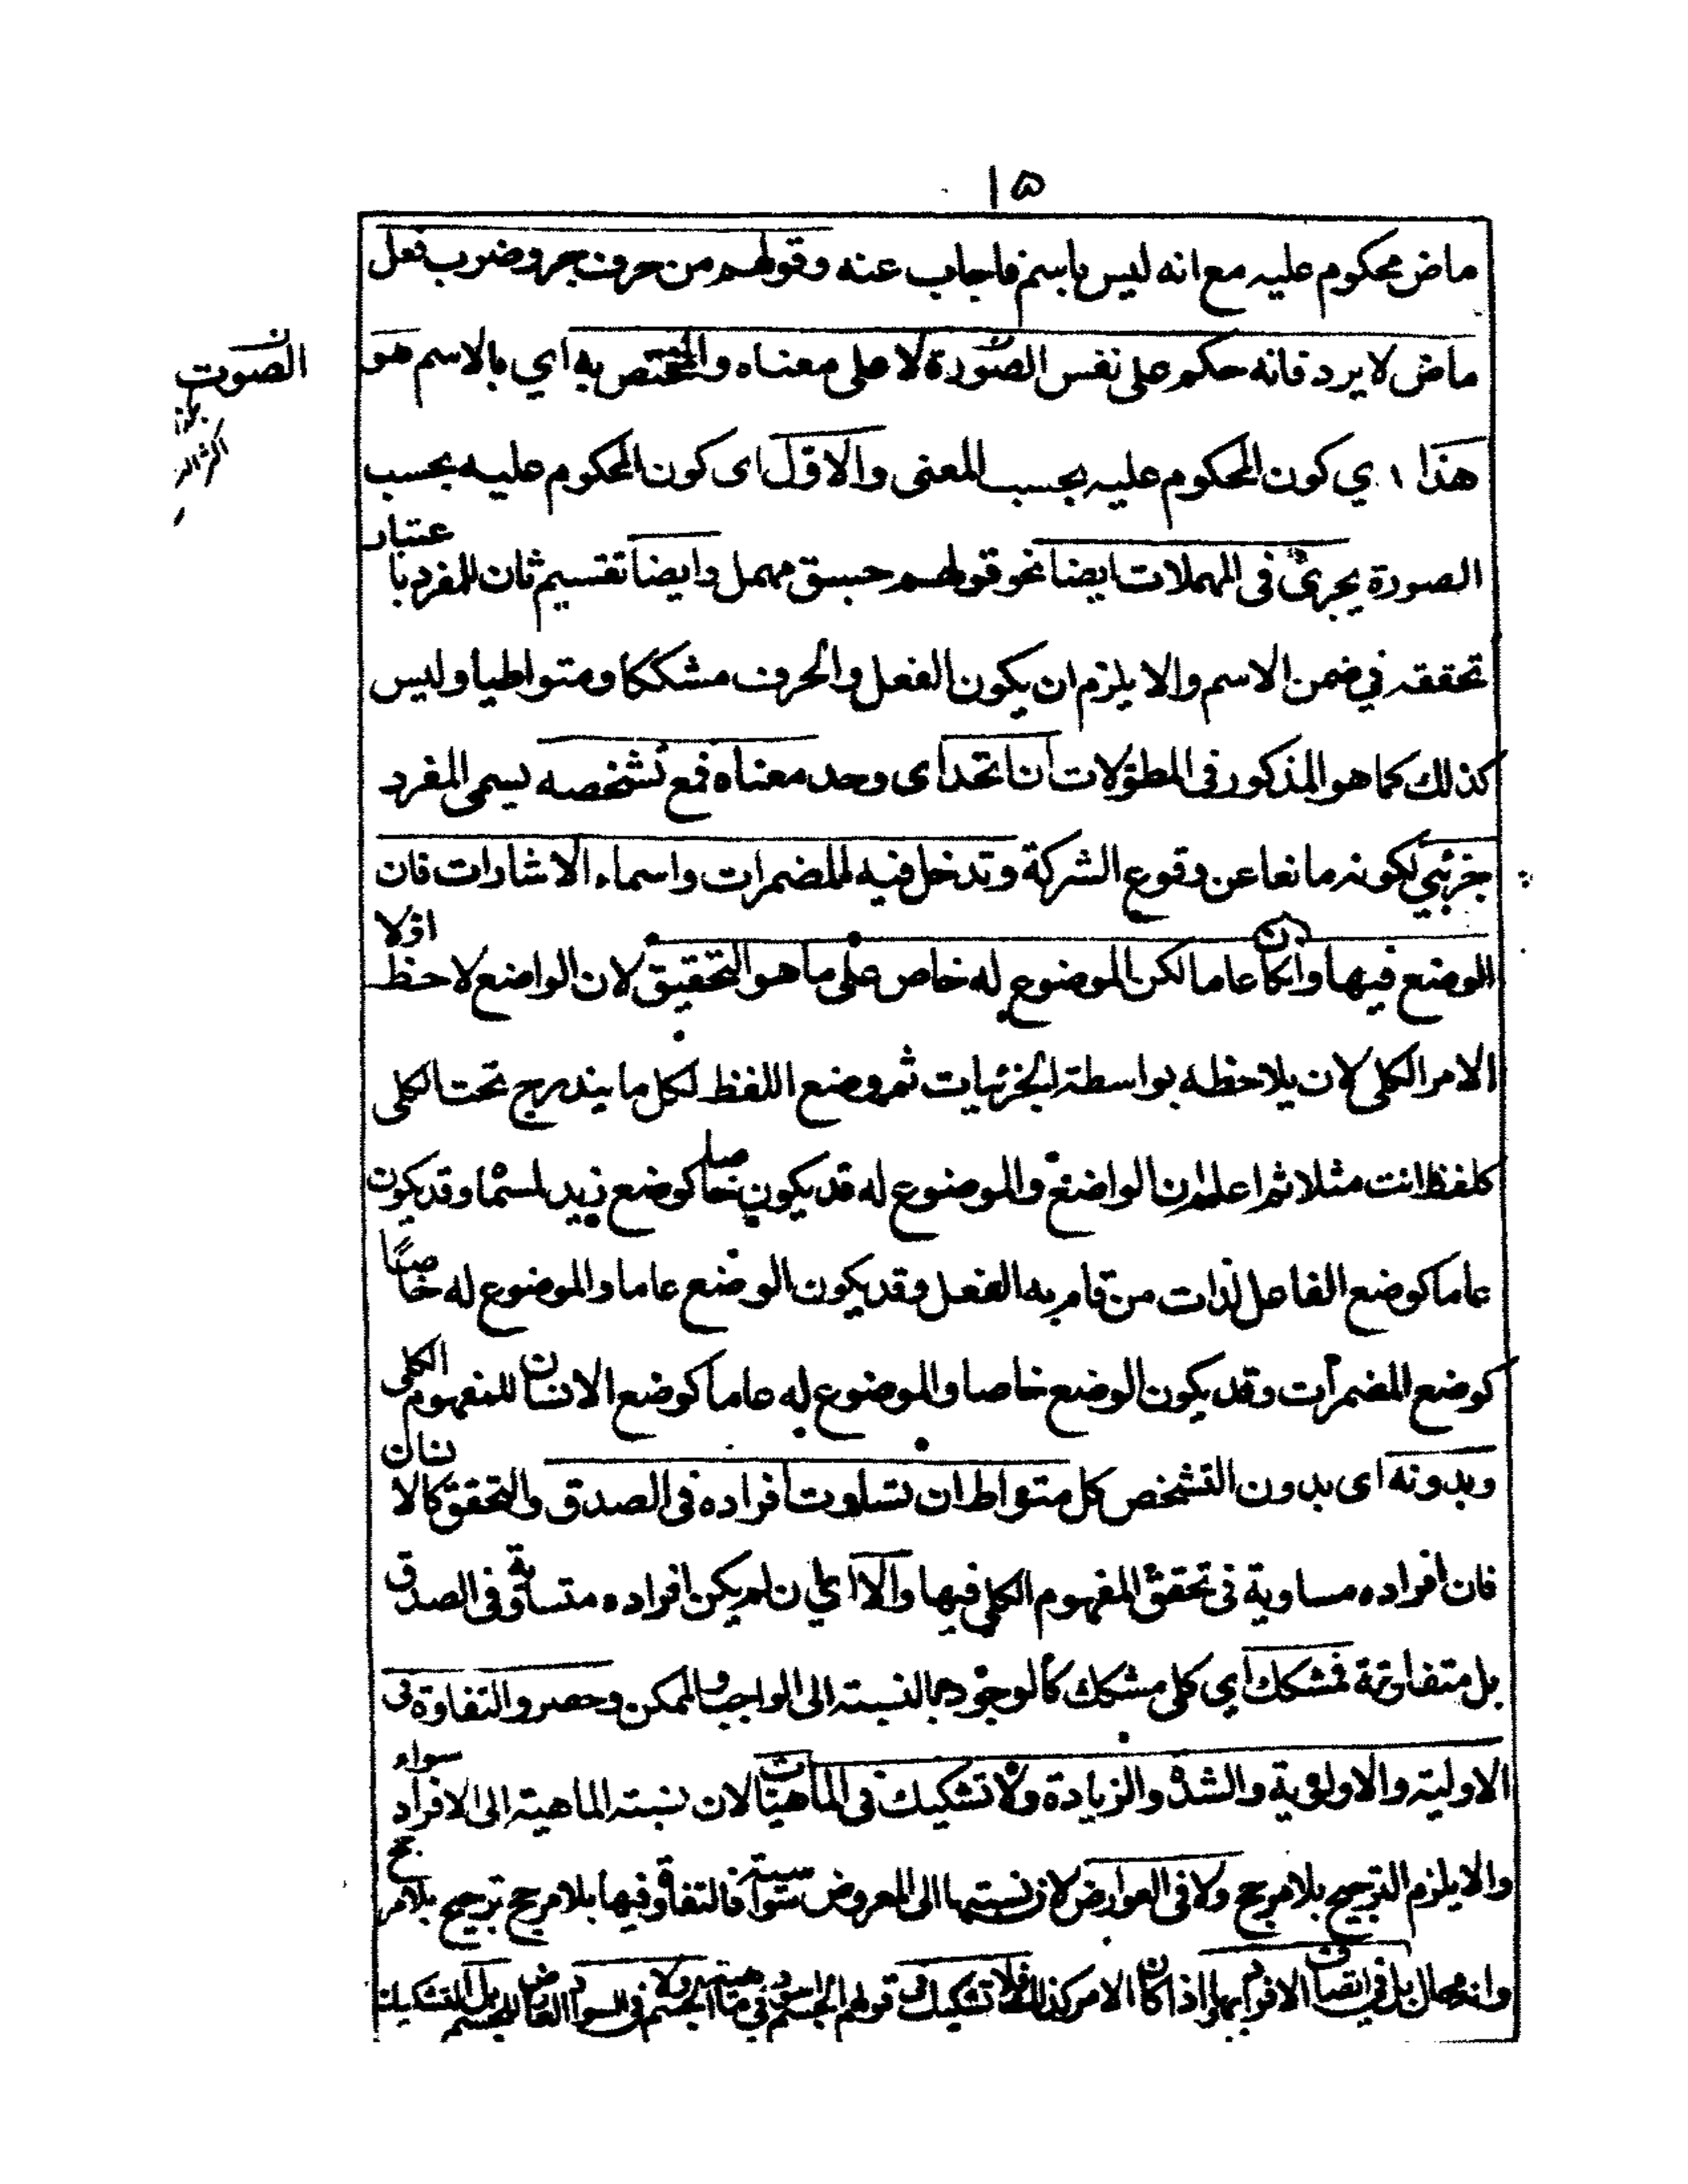 ١٥
ماض محكوم عليه مع انه ليس باسم فاجاب عنه وقولهم من حرف جر وضرب فعل
ماض لا يرد فانه حكم على نفس الصورة لا على معناه والمختص به اي بالاسم هو
الصوت
هذا اي كون المحكوم عليه بحسب المعنى والاول اى كون المحكوم عليه بحسب
الصورة يجرى فى المهملات ايضا نحو قولهم جسق مهمل وايضا تقسيم ثان للمفرد باعتبار
تحققه في ضمن الاسم والا يلزم ان يكون الفعل والحرف مشككا ومتواطيا وليس
كذلك كما هو المذكور فى المطولات ان اتحد اى وحد معناه فمع تشخصه يسمى المفرد
جزئي لكونه مانعا عن وقوع الشركة وتدخل فيه المضمرات واسماء الاشارات فان
الوضع فيها وان كان عاما لكن الموضوع له خاص على ما هو التحقيق لان الواضع لاحظ اولا
الامر الكلى لان يلاحظه بواسطة الجزئيات ثم وضع اللفظ لكل ما يندرج تحت الكلى
كلفظ انت مثلا ثم اعلم ان الواضع والموضوع له قد يكون خاصا كوضع زيد لمسمّا وقد يكون
عاما كوضع الفاعل لذات من قام به الفعل وقد يكون الوضع عاما والموضوع له خاصًا
كوضع المضمرات وقد يكون الوضع خاصا والموضوع له عاما كوضع الانسان للمفهوم الكلى
وبدونه اى بدون التشخص كل متواط ان تساوت افراده فى الصدق والتحقق كالانسان
فان افراده مساوية فى تحقق المفهوم الكلي فيها والا اي ان لم يكن افراده متساوية فى الصدق
بل متفاوتة فمشكك اي كلى مشكك كالوجود بالنسبة الى الواجب والممكن وحصر والتفاوة فى
الاولية والاولوية والشدة والزيادة ولا تشكيك فى الماهيات لان نسبته الماهية الى الافراد سواء
والا يلزم الترجيح بلا مرجح ولا فى العوارض لان نسبتها الى المعروض سواسية فالتفاوة فيها بلا مرجح ترجيح بلا مرجح
وانه محال بل في اتصاف الافراد بها واذا كان الامر كذلك فلا تشكيك فى قولهم الجسم